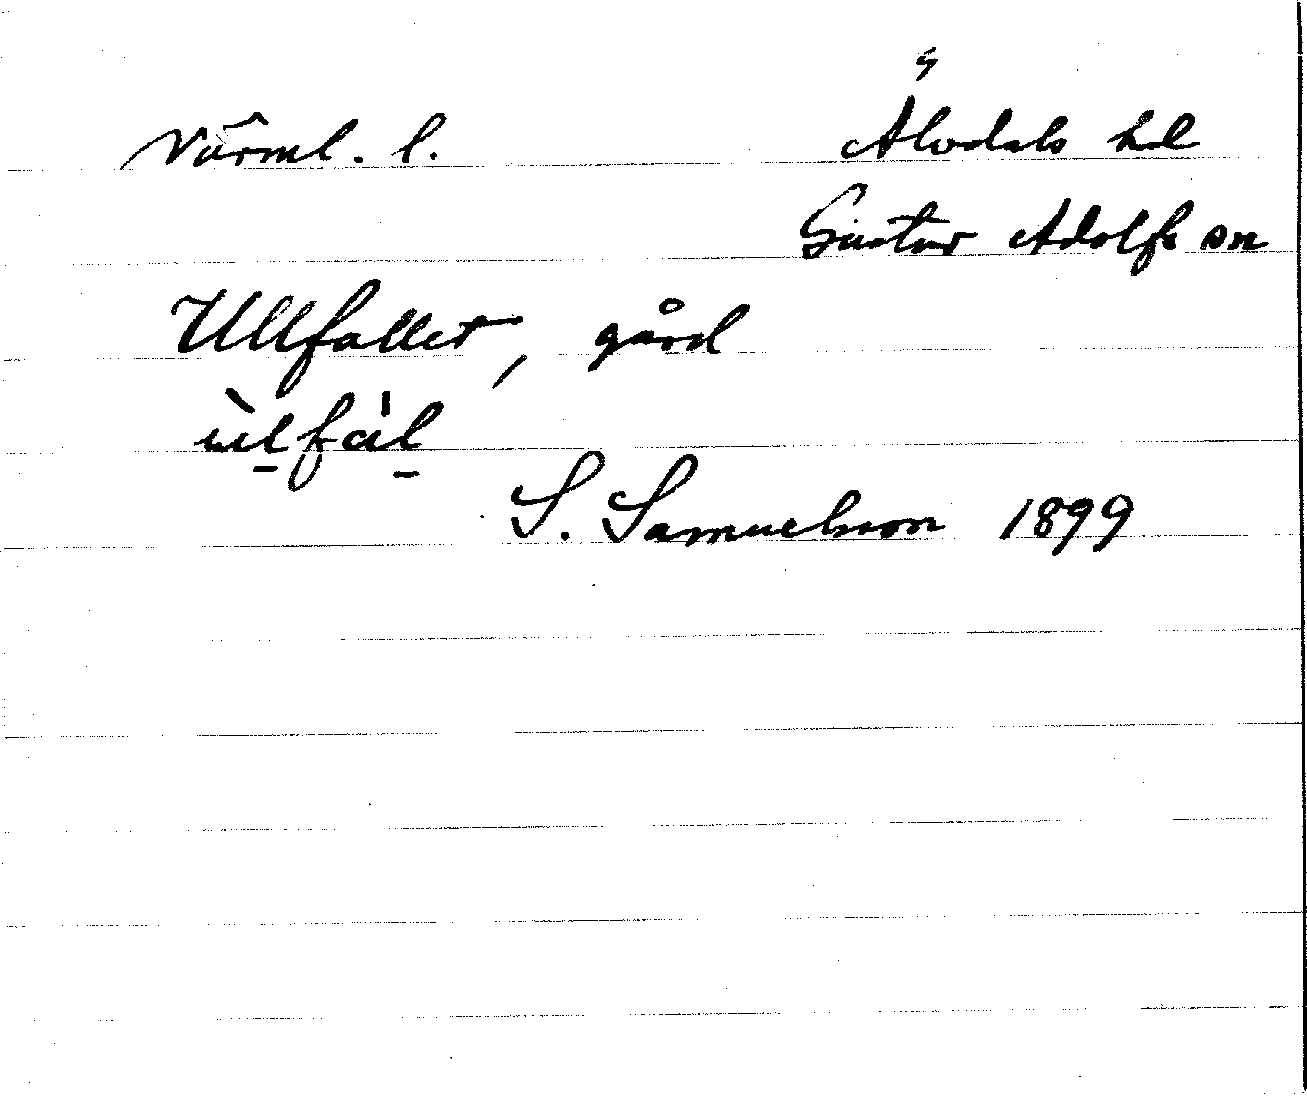 Värml. l. Älvdals hd
Gustav Adolfs sn
Ullfallet, gård
ùl̠fál̠
S. Samuelson 1899